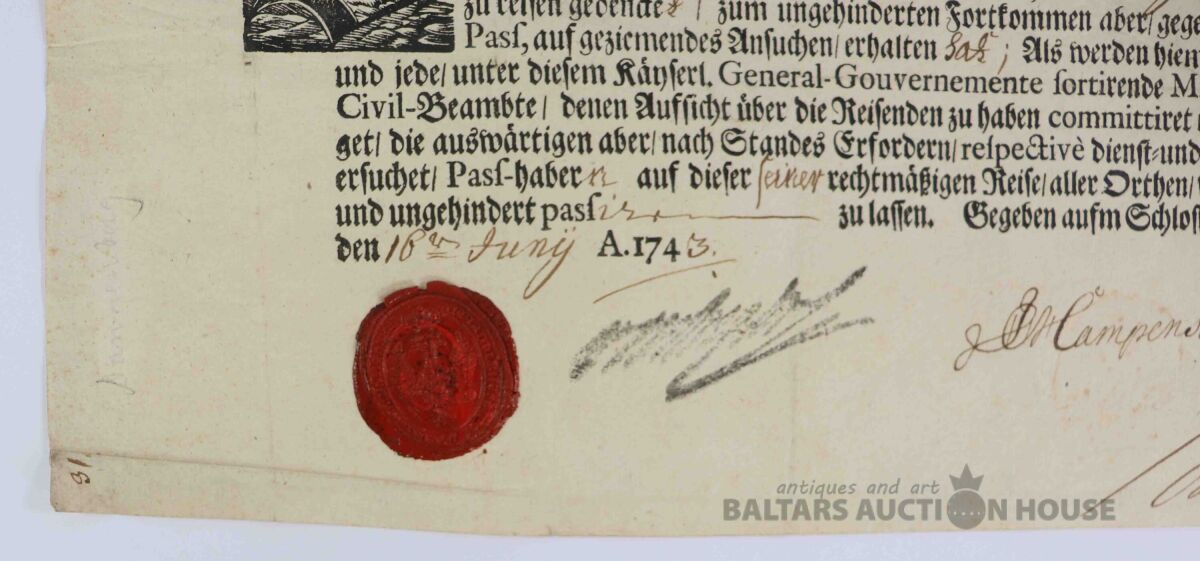 zu reisen gedencket / zum ungehinderten Fortkommen aber/ gege
Paſs, auf geziemendes Ansuchen/ erhalten hat; Als werden hien
und jede/ unter diesem Käyserl. General-Gouvernemente sortirende M
Civil-Beambte/ denen Aufsicht über die Reisenden zu haben committiret
get/ die auswärtigen aber/ nach Standes Erfordern/ respectivè dienst- und
ersuchet/ Paſs-habern auf dieser seiner rechtmäßigen Reise/ aller Orthen/
und ungehindert passiren zu lassen. Gegeben aufm Schloß
den 16ten Junij A. 1743.
Campen
31
antiques and art
BALTARS AUCTION HOUSE